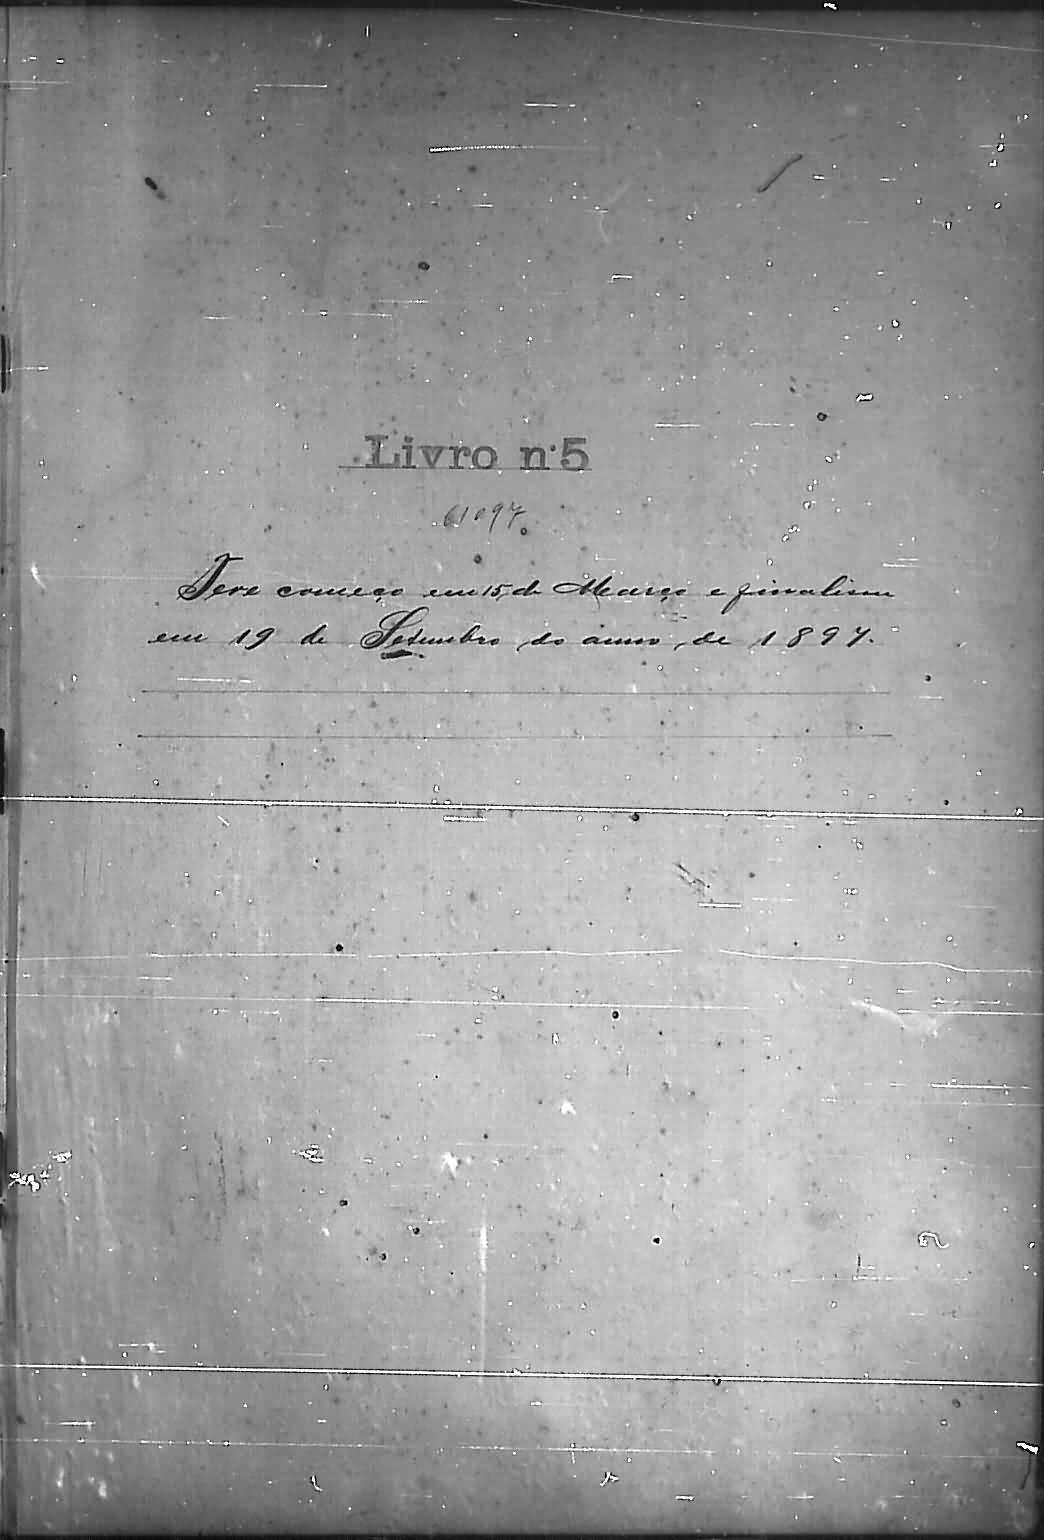 Livro nº 5
61097
Teve começo em 15 de Março e finalisou
em 19 de Setembro do anno de 1897.